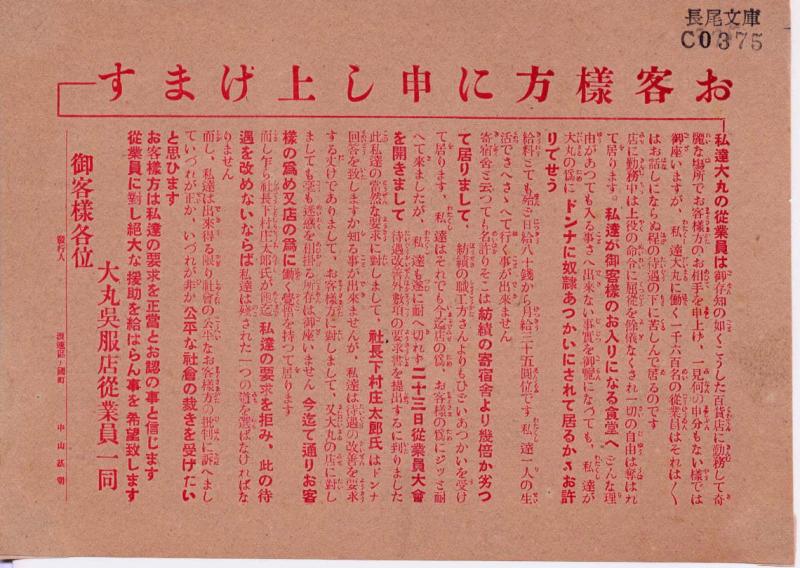 長尾文庫
C0375
お客様方に申し上げます
私達大丸の従業員は御存知の如くこうした百貨店に勤務して奇
麗な場所でお客様方のお相手を申上け、一見何の申分もない様では
御座いますが、私達大丸に働く一千六百名の従業員はそれは〳〵
はお話しにならぬ程の待遇の下に苦しんで居るのです
店に勤務中は上役の命令に屈従を余儀なくされ一切の自由は奪はれ
て居ります。私達が御客様のお入りになる食堂へどんな理
由があつても入る事さへ出来ない事実を御覧になつても、私達が
大丸の為に ドンナに奴隷あつかいにされて居るか お許
りでせう
給料とても始め日給八十銭から月給三十五圓位です 私達一人の生
活でさへさゝへて行く事が出来ません
寄宿舎と云つても名許りそこは 紡績の寄宿舎より幾倍か劣つ
て居りまして、紡績の職工方さんよりもひどいあつかいを受け
て居ります、私達はそれでも今迄店の為、お客様の為にジッと耐
へて来ましたが、私達も遂に耐へ切れず 二十三日従業員大会
を開きまして 待遇改善外数項の要求書を提出するに到りました
此私達の当然な要求に対しまして、社長下村庄太郎氏はドンナ
回答を致しますか知る事が出来ませんが、私達は待遇の改善を要求
する丈けでありまして、お客様方に対しまして、又大丸の店に対し
ましても毫も迷惑を相掛る所存は御座いません 今迄て通りお客
様の為め又店の為に働く覚悟を持つて居ります
而し乍ら社長下村庄太郎氏が飽迄 私達の要求を拒み、此の待
遇を改めないならば 私達は残された一つの道を選ばなければな
りません
而し、私達は出来得る限り社会の公平なお客様方の批判に訴へまし
ていづれが正か、いづれが非か 公平な社会の裁きを受けたい
と思ひます
お客様方は私達の要求を正当とお認の事と信じます
従業員に対し絶大な援助を給はらん事を希望致します
大丸呉服店従業員一同
御客様各位
発行人 浪速区 国町 中山